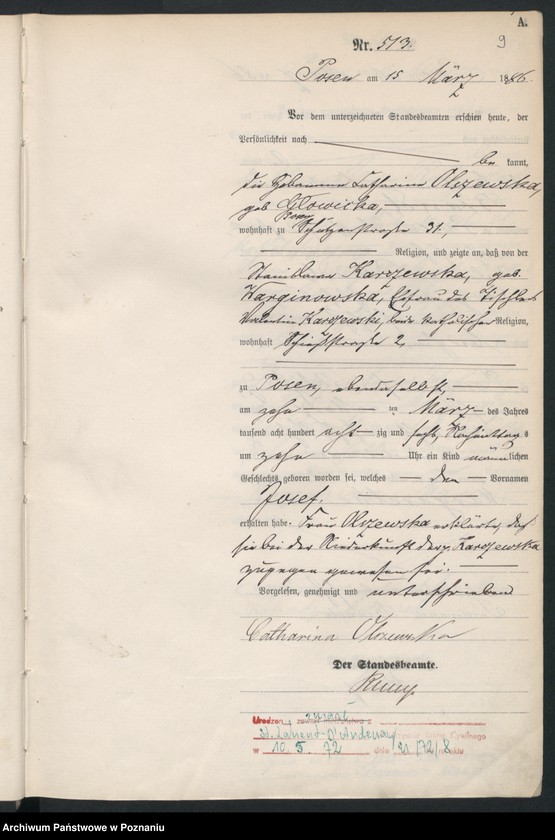 A.
9
Nr. 513.
Posen am 15 März 1886.
Vor dem unterzeichneten Standesbeamten erschien heute, der
Persönlichkeit nach
be kannt,
die Hebamme Catharina Olszewska,
geb Glowicka,
wohnhaft zu Posen Schützenstraße 31,
Religion, und zeigte an, daß von der
Stanislawa Karczewska, geb.
Karginowska, Ehefrau des Tischlers
Valentin Karczewski, beide katholischer Religion,
wohnhaft Schießstraße 2,
zu Posen, ebendaselbst,
am zehn ten März des Jahres
tausend acht hundert acht zig und sechs, Nachmittag s
um zehn Uhr ein Kind männlichen
Geschlechts geboren worden sei, welches den Vornamen
Josef.
erhalten habe. Frau Olszewska erklärte, daß
sie bei der Niederkunft der Karczewska
zugegen gewesen sei.
Vorgelesen, genehmigt und unterschrieben
Catharina Olszewska
Der Standesbeamte.
zmarł
St. Laurent-
w 10. 5. 72 dnia 21/72/8
Archiwum Państwowe w Poznaniu